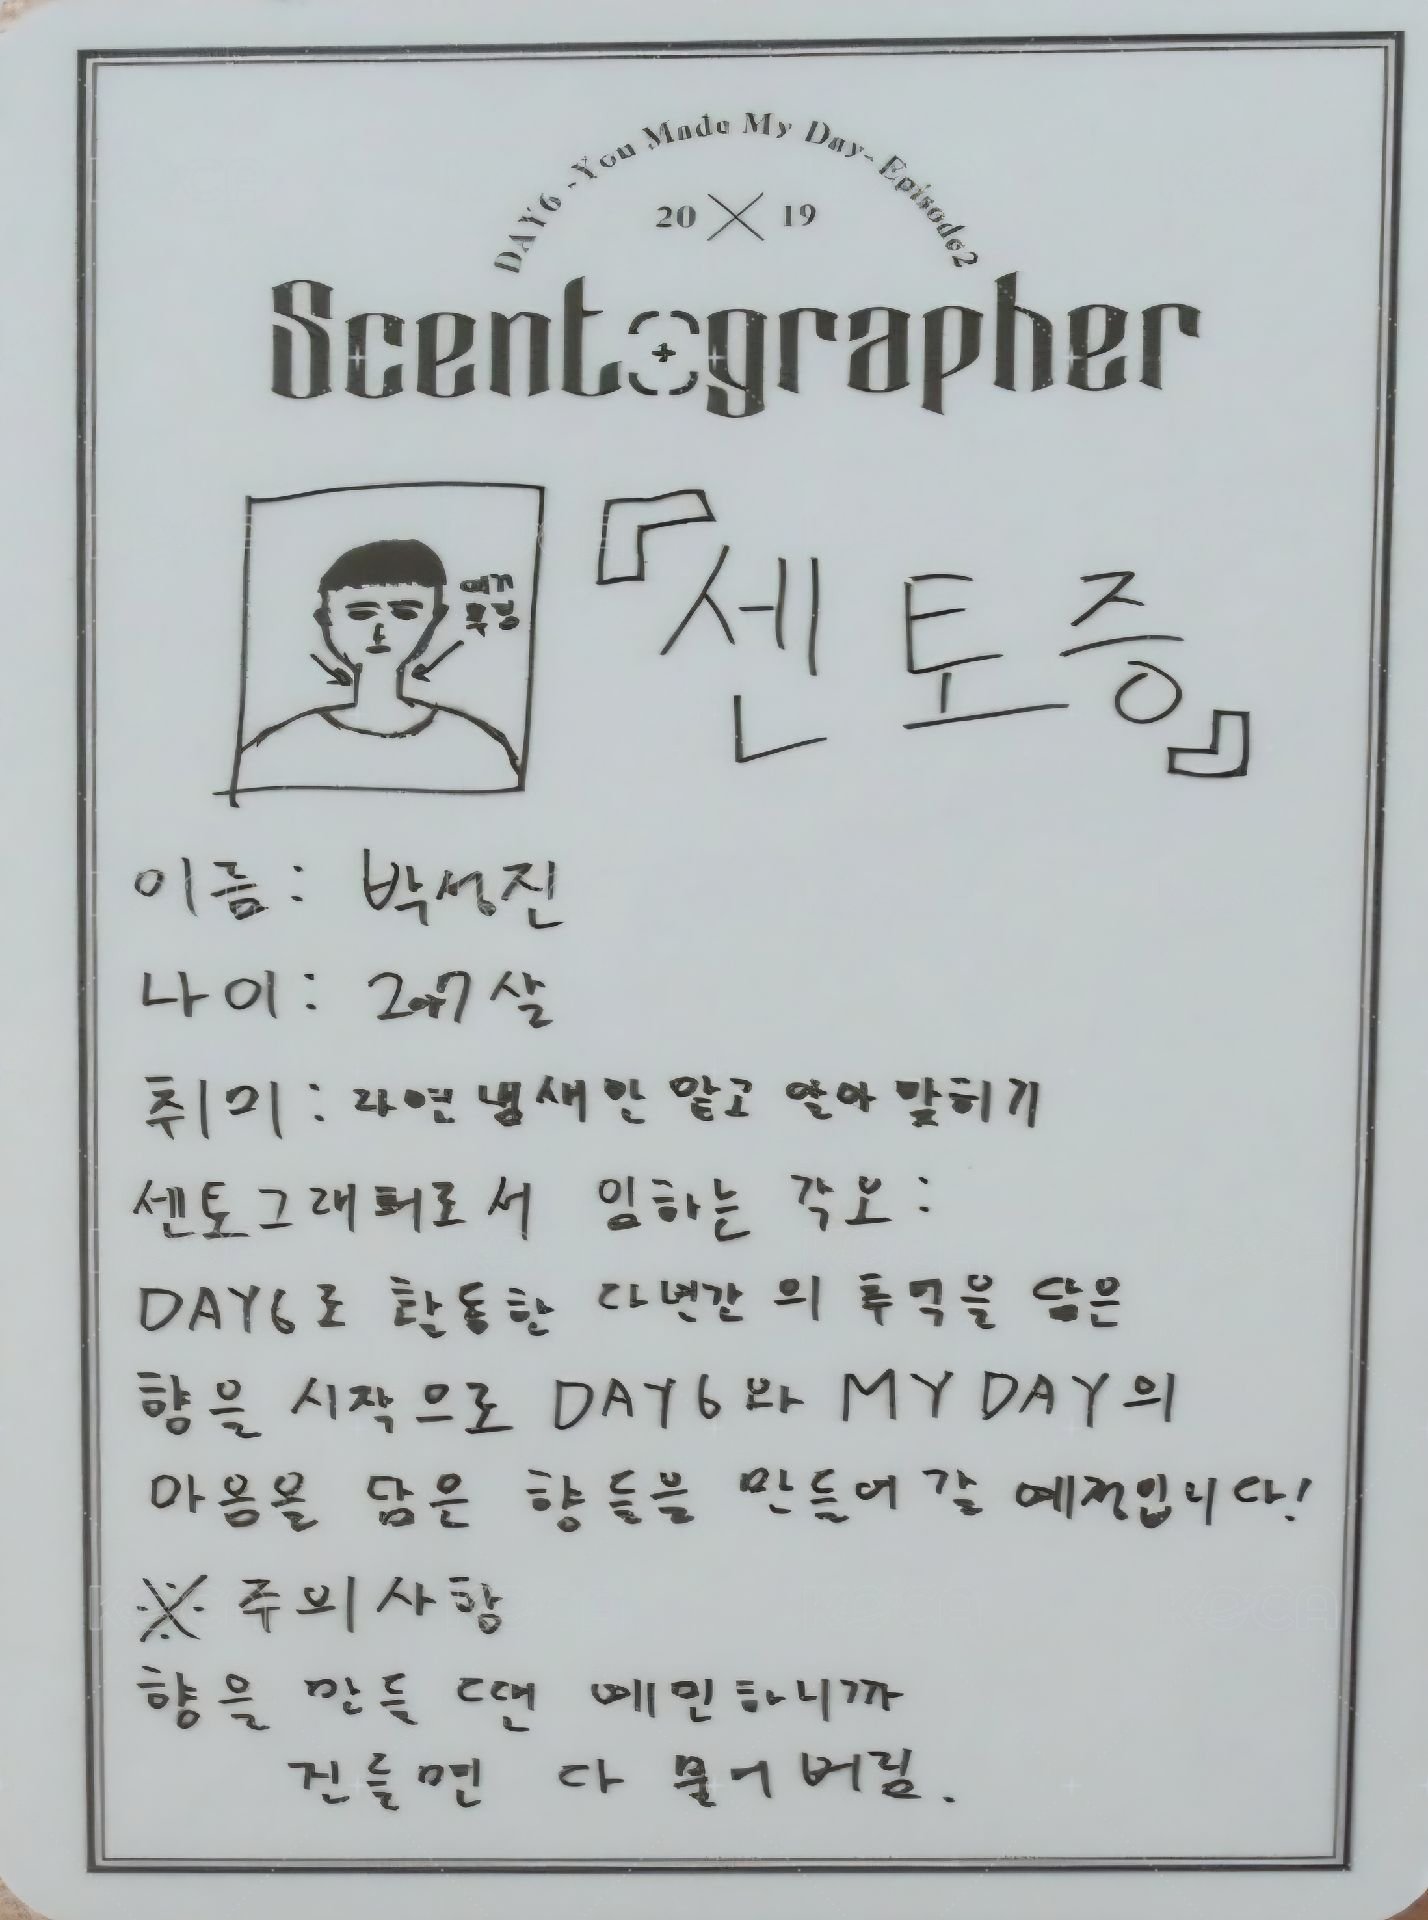 DAY6 -You Made My Day- Episode2
20 19
Scentographer
『센토증』
여기
이름: 박성진
나이: 27살
취미: 라면 냄새 안 맡고 알아 맞히기
센토그래퍼로서 임하는 각오:
DAY6로 활동한 다년간의 추억을 담은
향을 시작으로 DAY6와 MY DAY의
마음을 담은 향들을 만들어 갈 예정입니다!
※주의사항
향을 만들 땐 예민하니까
건들면 다 물어버림.